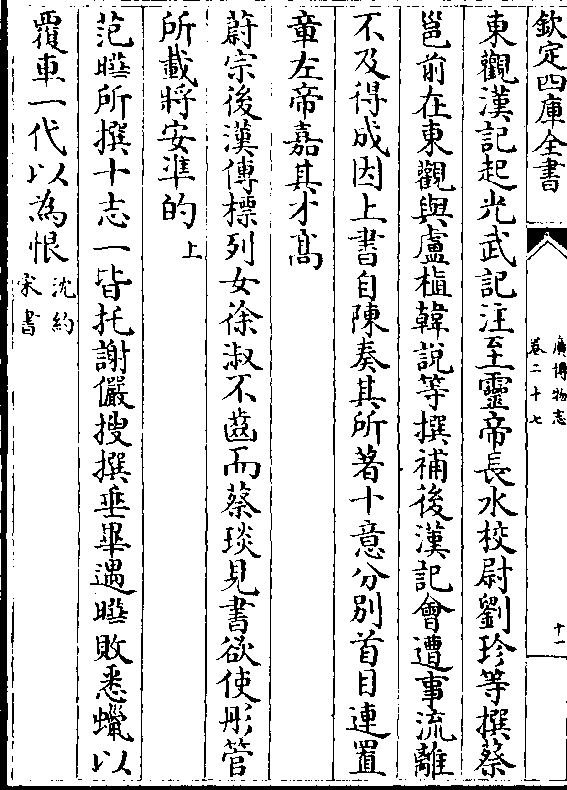 欽定四庫全書
廣博物志
卷二十七
十一
東觀漢記起光武記注至靈帝長水校尉劉珍等撰蔡
邕前在東觀與盧植韓說等撰補後漢記會遭事流離
不及得成因上書自陳奏其所著十意分别首目連置
章左帝嘉其才髙
蔚宗後漢傳標列女徐淑不齒而蔡琰見書欲使彤管
所載將安準的上
范曄所撰十志一皆托謝儼搜撰垂畢遇曄敗悉蠟以
覆車一代以為恨沈約
宋書